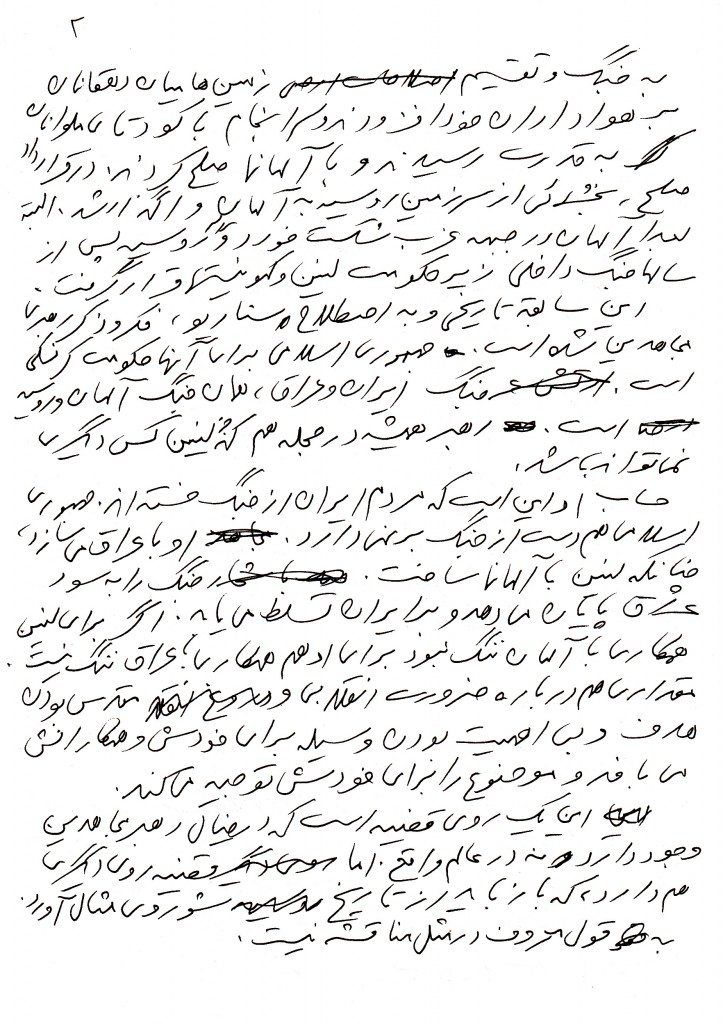 ۲
به جنگ و تقسیم زمین‌ها میان دهقانان
بر هواداران خود افزودند و سرانجام با کودتای ملوانان
به قدرت رسیدند و با آلمانها صلح کردند. در قرارداد
صلح، بخشهائی از سرزمین روسیه به آلمان واگذار شد. البته
بعداً آلمان در جبهه غرب شکست خورد و روسیه پس از
سالها جنگ داخلی زیر حکومت لنین و کمونیستها قرار گرفت.
این سابقه تاریخی و به اصطلاح سناریو، فکر و ذکر رهبری
مجاهدین شده است. جمهوری اسلامی برای آنها حکومت کرنسکی
است. جنگ ایران و عراق، همان جنگ آلمان و روسیه
است. رهبر همیشه در حجله هم که جز لنین کس دیگری
نمی‌تواند باشد.
حساب او این است که مردم ایران از جنگ خسته‌اند. جمهوری
اسلامی هم دست از جنگ برنمی‌دارد. او با عراق می‌سازد،
چنانکه لنین با آلمانها ساخت. جنگ را به سود
عراق پایان می‌دهد و بر ایران تسلط می‌یابد. اگر برای لنین
همکاری با آلمان ننگ نبود برای او هم همکاری با عراق ننگ نیست.
مقداری هم درباره ضرورت انقلابی و دروغ مقدس بودن
هدف و بی اهمیت بودن وسیله برای خودش و همکارانش
می‌بافد و موضوع را برای خودش توجیه می‌کند.
این یک روی قضیه است که در خیال رهبر مجاهدین
وجود دارد و نه در عالم واقع. اما قضیه روی دیگری
هم دارد، که باز باید از تاریخ شوروی مثال آورد.
به قول معروف در مثل مناقشه نیست.